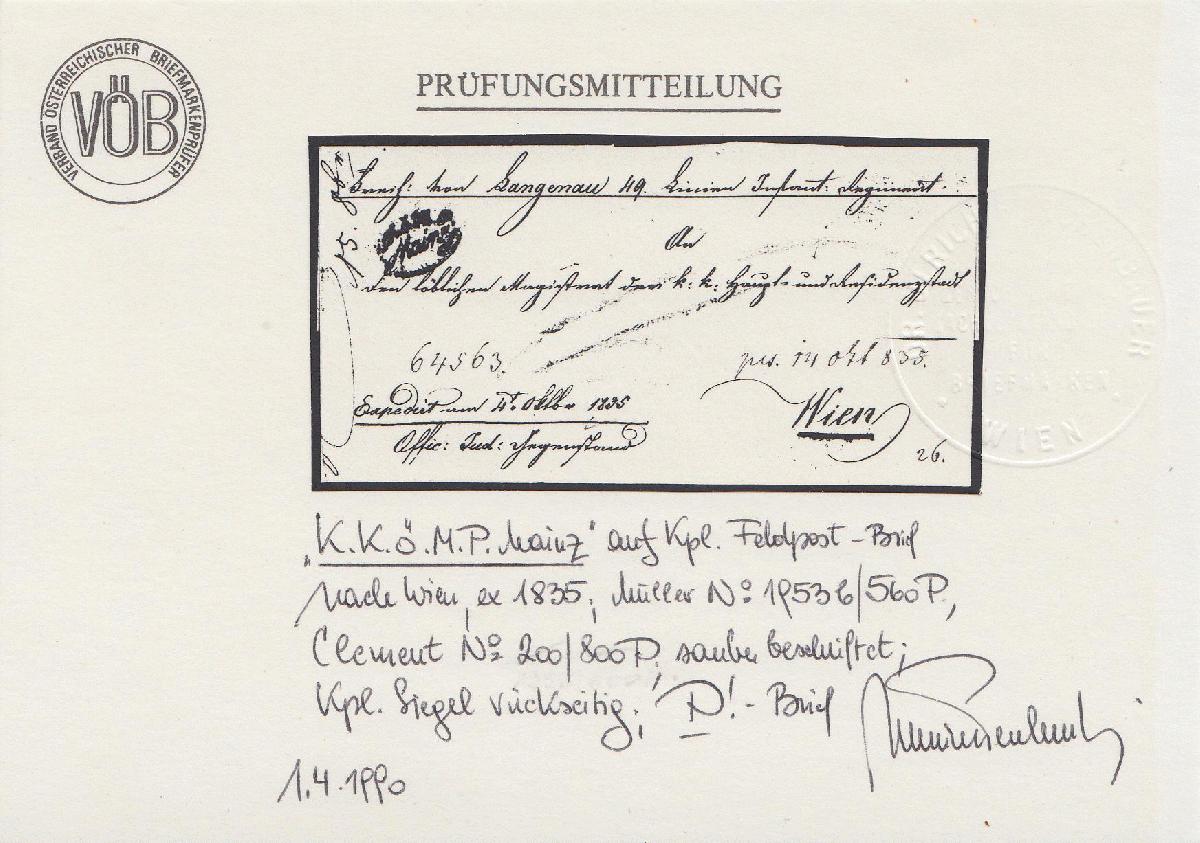 VERBAND ÖSTERREICHISCHER BRIEFMARKENPRÜFER
VÖB
PRÜFUNGSMITTEILUNG
Freih: von Langenau 49. Linien Infant: Regiment.
Mainz
An
Den löblichen Magistrat der k: k: Haupt- und Residenzstadt
64563.
prs. 14 Okt 835.
Expedirt am 4t. Oktbr 1835
Wien
Offic: Jud: Gegenstand
26.
WIEN
„K.K.Ö.M.P. Mainz" auf Kpl. Feldpost-Brief
nach Wien, ex 1835; Müller No 1953b/560P.,
Clement No 200/800P, sauber beschriftet;
Kpl. Siegel rückseitig; 'P!'-Brief
1.4.1990